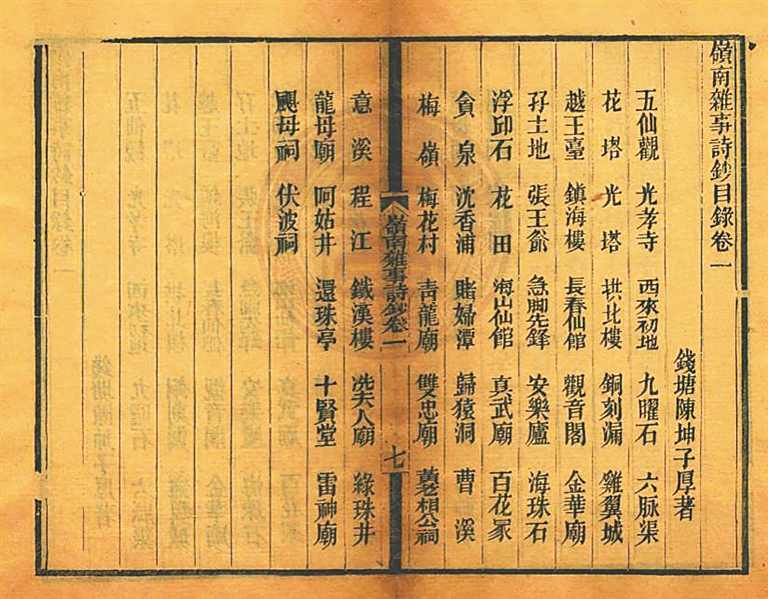 嶺南雜事詩鈔目錄卷一
錢塘陳坤子厚著
五仙觀 光孝寺 西來初地 九曜石 六脉渠
花塔 光塔 拱北樓 銅刻漏 雞翼城
越王臺 鎮海樓 長春仙館 觀音閣 金華廟
孖土地 張王爺 急脚先鋒 安樂廬 海珠石
浮邱石 花田 海山仙館 真武廟 百花冢
貪泉 沈香浦 賭婦潭 歸猿洞 曹溪
梅嶺 梅花村 青龍廟 雙忠廟 相公祠
嶺南雜事詩鈔卷一 七
意溪 程江 鐵漢樓 冼夫人廟 綠珠井
龍母廟 阿姑井 還珠亭 十賢堂 雷神廟
颶母祠 伏波祠